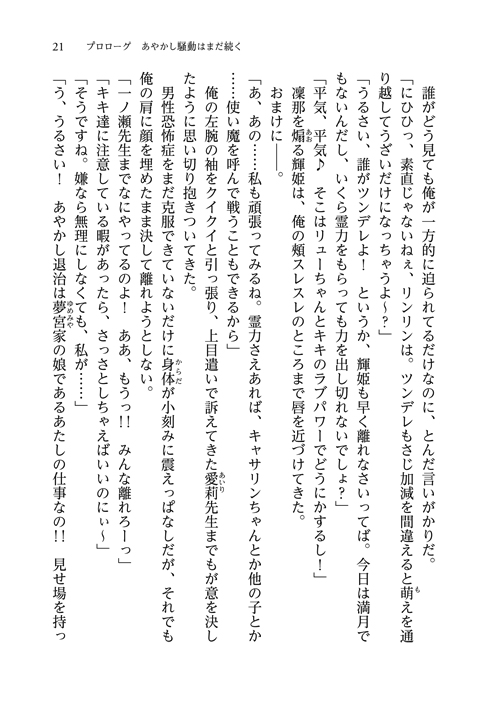 21　プロローグ　あやかし騒動はまだ続く
　誰がどう見ても俺が一方的に迫られてるだけなのに、とんだ言いがかりだ。
「にひひっ、素直じゃないねぇ、リンリンは。ツンデレもさじ加減を間違えると萌えを通
り越してうざいだけになっちゃうよ～？」
「うるさい、誰がツンデレよ！　というか、輝姫も早く離れなさいってば。今日は満月で
もないんだし、いくら霊力をもらっても力を出し切れないでしょ？」
「平気、平気♪　そこはリューちゃんとキキのラブパワーでどうにかするし！」
　凜那を煽る輝姫は、俺の頰スレスレのところまで唇を近づけてきた。
　おまけに――。
「あ、あの……私も頑張ってみるね。霊力さえあれば、キャサリンちゃんとか他の子とか
……使い魔を呼んで戦うこともできるから」
　俺の左腕の袖をクイクイと引っ張り、上目遣いで訴えてきた愛莉先生までもが意を決し
たように思い切り抱きついてきた。
　男性恐怖症をまだ克服できていないだけに身体が小刻みに震えっぱなしだが、それでも
俺の肩に顔を埋めたまま決して離れようとしない。
「一ノ瀬先生までなにやってるのよ！　ああ、もうっ!!　みんな離れろーっ」
「キキ達に注意している暇があったら、さっさとしちゃえばいいのにぃ～」
「そうですね。嫌なら無理にしなくても、私が……」
「う、うるさい！　あやかし退治は夢宮家の娘であるあたしの仕事なの!!　見せ場を持っ